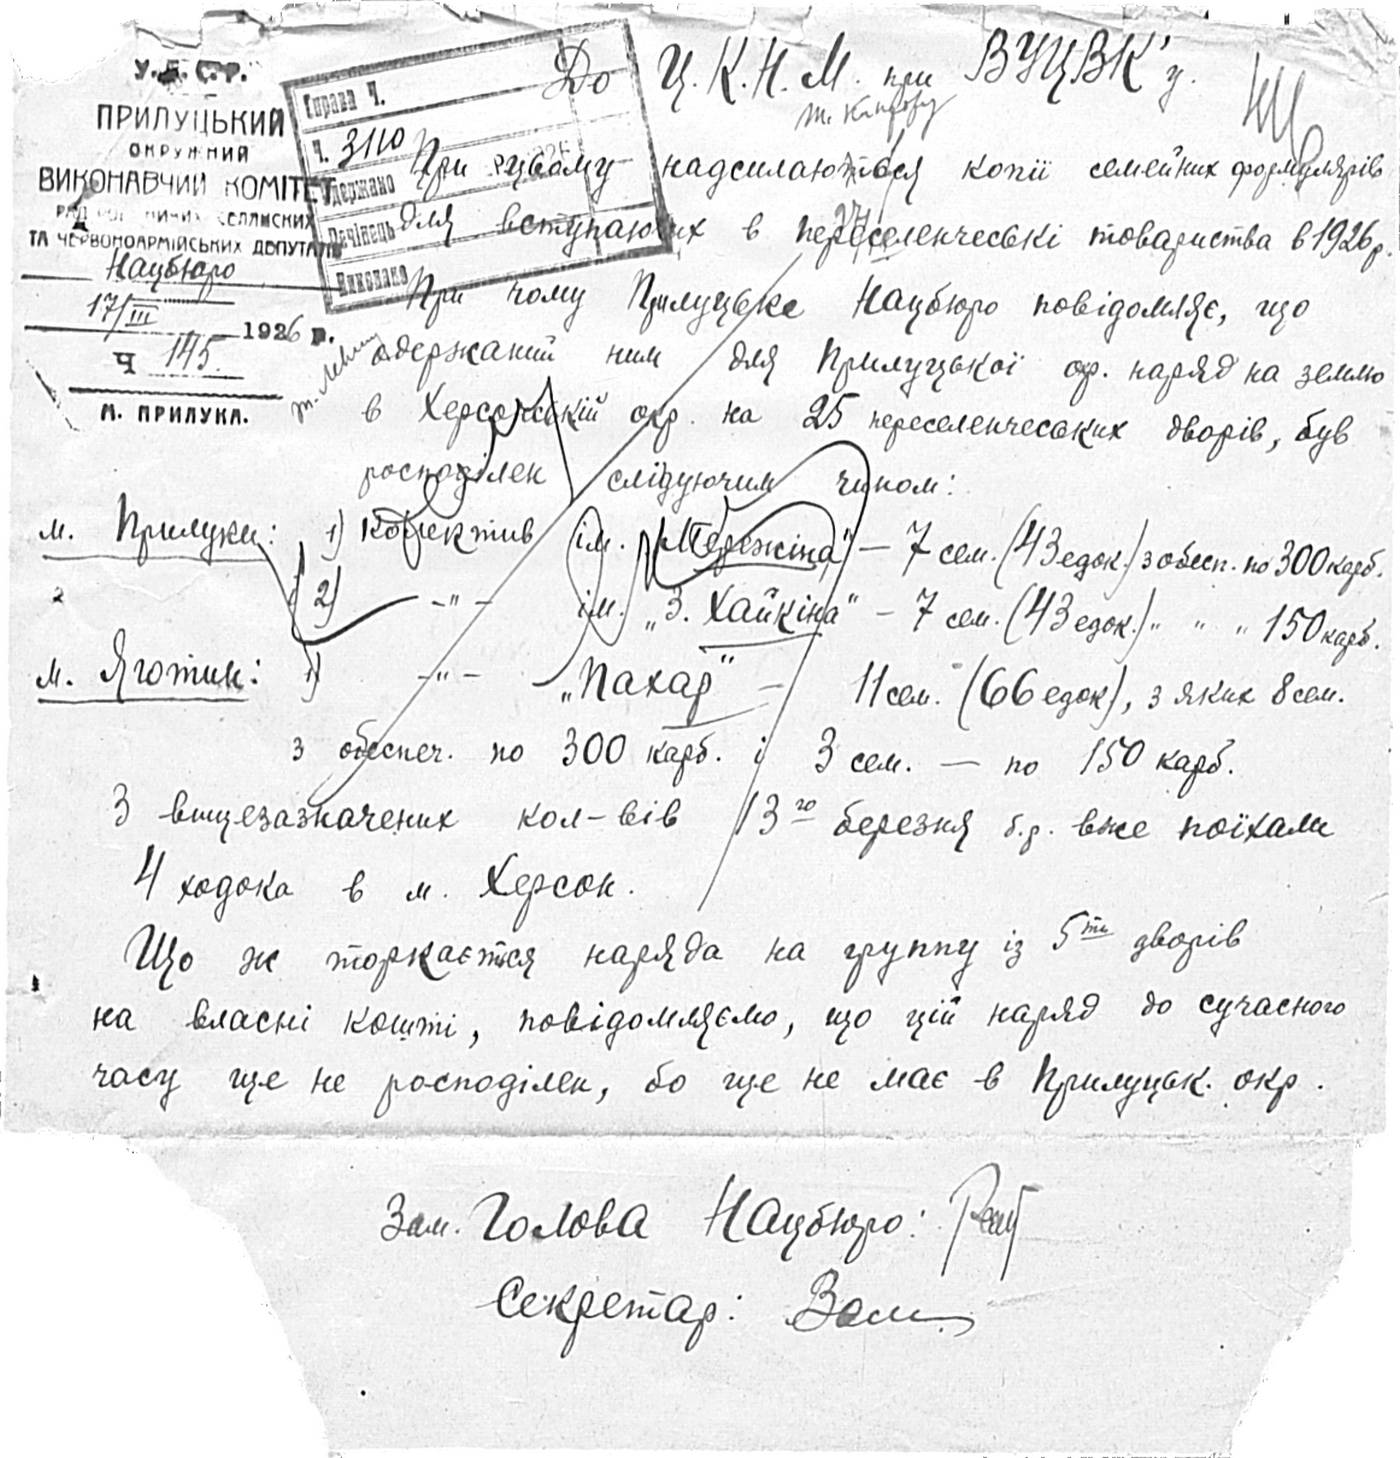 У.С.С.Р.
ПРИЛУЦЬКИЙ
ОКРУЖНИЙ
ВИКОНАВЧИЙ КОМІТЕТ
РАД СЕЛЯНСЬКИХ
ТА ЧЕРВОНОАРМІЙСЬКИХ ДЕПУТАТІВ
Нацбюро
17/III 1926 р.
Ч 145
М. ПРИЛУКА.
Справа Ч.
Ч. 3110
Одержано
Речінець
Виконано
До Ц.К.Н.М. при ВУЦВК'у.
При цьому надсилаються копії семейних формулярів
для вступаючих в переселенчеські товариства в 1926 р.
При чому Прилуцьке Нацбюро повідомляє, що
одержаний ним для Прилуцької ок. наряд на землю
в Херсонській окр. на 25 переселенчеських дворів, був
росподілен слідуючим чином:
м. Прилуки: 1) Колектив ім. "Мережіна" – 7 сем. (43 едок.) з обесп. по 300 карб.
2) –"– ім. „З. Хайкіна" – 7 сем. (43 едок.) " " " 150 карб.
м. Яготин: 1) –"– „Пахар" – 11 сем. (66 едок), з яких 8 сем.
з обеспеч. по 300 карб. і 3 сем. — по 150 карб.
З вищезазначених кол-вів 13го березня б.р. вже поїхали
4 ходока в м. Херсон.
Що ж торкається наряда на группу із 5ти дворів
на власні кошті, повідомляємо, що цій наряд до сучасного
часу ще не росподілен, бо ще не має в Прилуцьк. окр.
Зам. Голова Нацбюро:
Секретар: